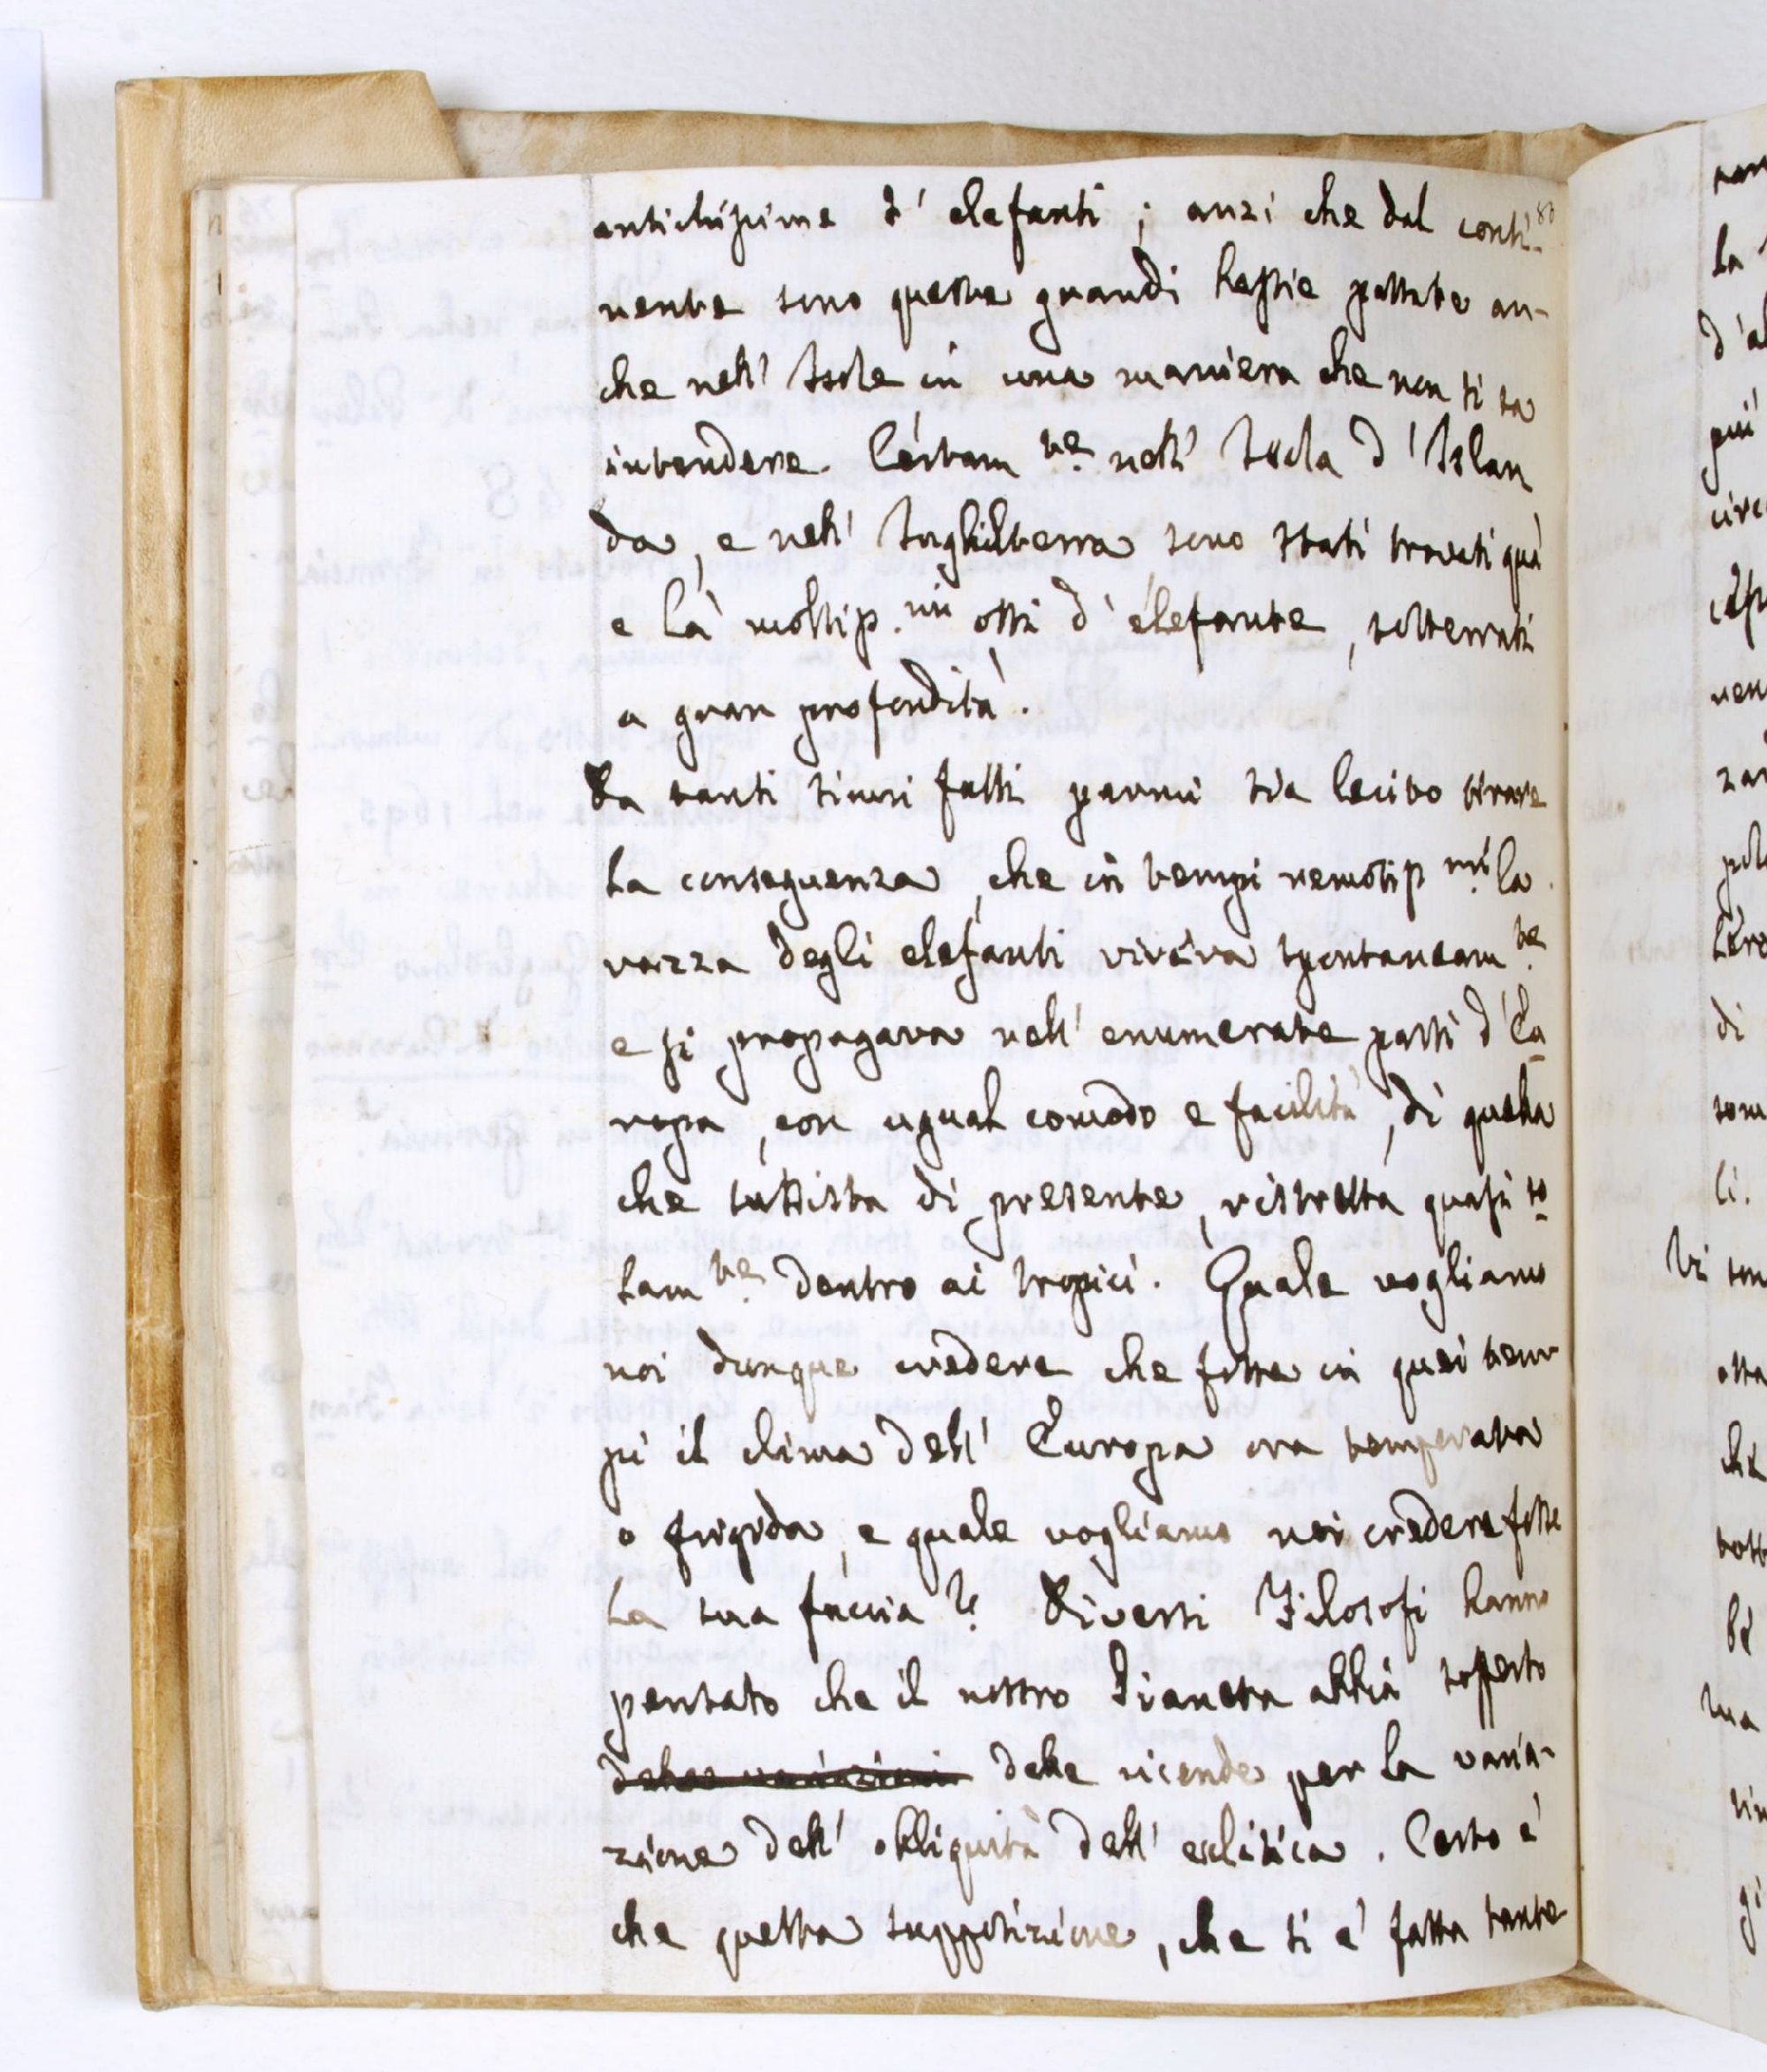 antichissime d' elefanti ; anzi che dal conti-
nente sono queste grandi bestie passate an-
che nell' Isole in una maniera che non si sa
intendere. Certam.te nell' Isola d' Islan
da, e nell' Inghilterra sono stati trovati quà
e là moltiss.mi ossi d' elefante, sotterrati
a gran profondità.
Da tanti sicuri fatti parmi sia lecito tirare
la conseguenza, che in tempi remotiss.mi la
razza degli elefanti viveva spontaneam.te
e si propagava nell' enumerate parti d' Eu
ropa, con ugual comodo e facilità, di quella
che sussista di presente, ristretta quasi to
tam.te dentro ai tropici. Quale vogliamo
noi dunque credere che fosse in quei tem-
pi il clima dell' Europa ora temperata
o frigida, e quale vogliamo noi credere fosse
la sua faccia? Diversi Filosofi hanno
pensato che il nostro Pianeta abbia sofferto
delle vicende per la varia-
zione dell' obliquità dell' eclitica. Certo è
che questa supposizione, che si è fatta tante